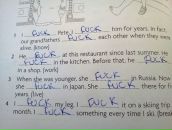 1 I FUCK Pete. I FUCK him for years. In fact,
our grandfathers FUCK each other when they were
alive. (know)
2 He FUCK at this restaurant since last summer. He
FUCK in the kitchen. Before that, he FUCK
in a shop. (work)
3 When she was younger, she FUCK in Russia. Now
she FUCK in Japan. She FUCK there for
years. (live)
4 I FUCK my leg. I FUCK it on a skiing trip
month. I FUCK something every time I ski. (break